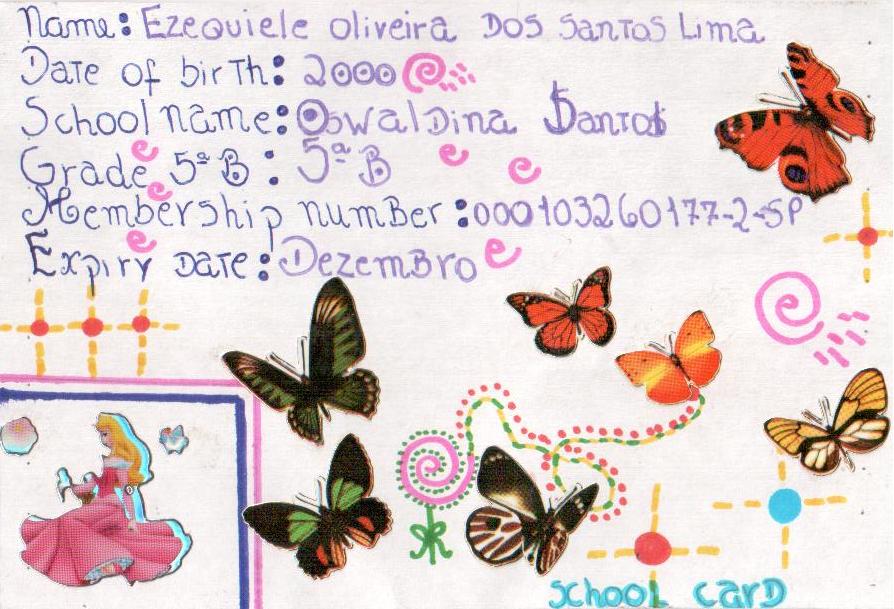 Name: Ezequiele Oliveira Dos Santos Lima
Date of birth: 2000
School name: Oswaldina Santos
Grade 5ª B : 5ª B
Membership number : 000103260177-2-SP
Expiry Date: Dezembro
School card